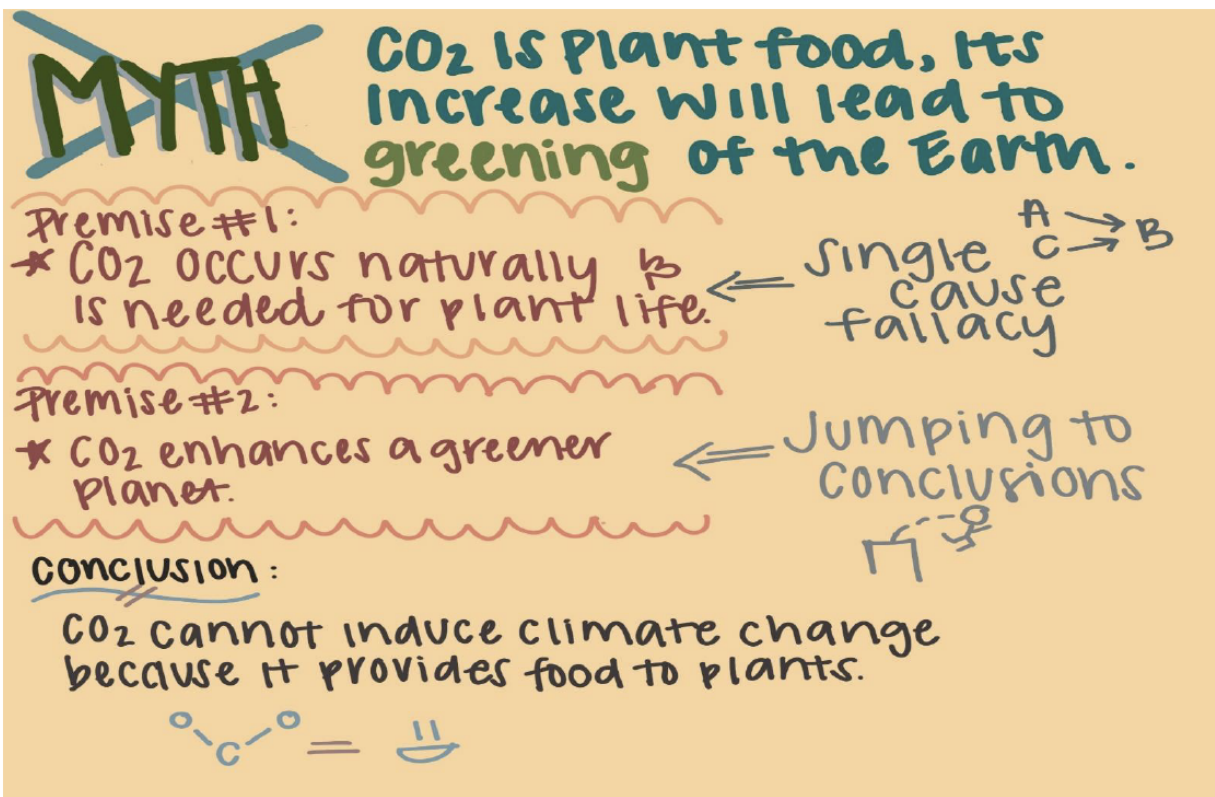 MYTH
CO2 is plant food, its
increase will lead to
greening of the Earth.
Premise #1:
* CO2 occurs naturally &
is needed for plant life.
Single
cause
fallacy
A
C
B
Premise #2:
* CO2 enhances a greener
planet.
Jumping to
conclusions
Conclusion:
CO2 cannot induce climate change
because it provides food to plants.
O C O =